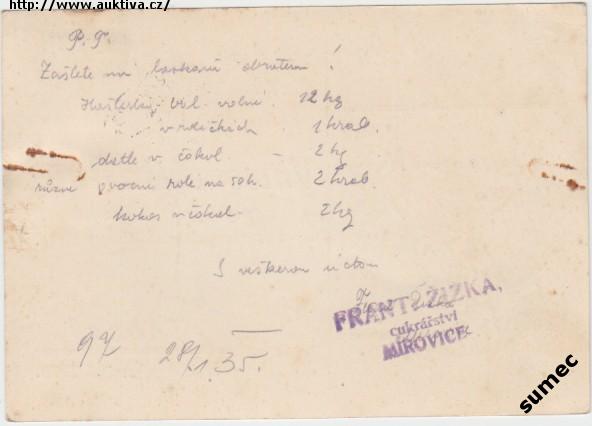 http://www.auktiva.cz/
P. T.
Zašlete mi laskavě obratem!
Hašlerky bal. volné 12 kg
" v roličkách 1 krab.
datle v čokol. – 2 kg
různé ovocné role na 50h. 2 krab.
kokos v čokol. 2 kg
S veškerou úctou
FRANT. ŽIŽKA,
cukrářství
MIROVICE
97 28/1.35.
sumec